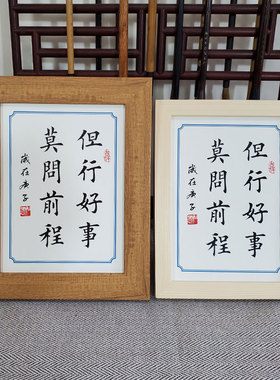 但行好事
莫問前程
歲在庚子
但行好事
莫問前程
歲在庚子